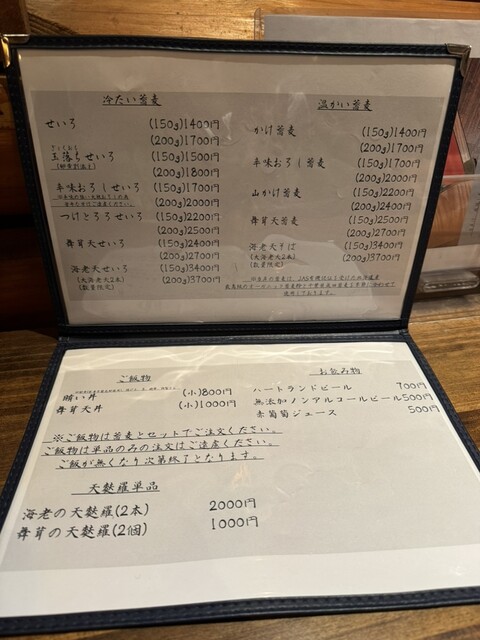 冷たい蕎麦
せいろ (150g)1400円
(200g)1700円
玉落ちせいろ (150g)1500円
(200g)1800円
辛味おろしせいろ (150g)1700円
(200g)2000円
つけとろろせいろ (150g)2200円
(200g)2500円
舞茸天せいろ (150g)2400円
(200g)2700円
海老天せいろ (150g)3400円
(大海老天2本) (200g)3700円
(数量限定)
温かい蕎麦
かけ蕎麦 (150g)1400円
(200g)1700円
辛味おろし蕎麦 (150g)1700円
(200g)2000円
山かけ蕎麦 (150g)2200円
(200g)2400円
舞茸天蕎麦 (150g)2500円
(200g)2700円
海老天そば (150g)3400円
(大海老天2本) (200g)3700円
(数量限定)
使用しております。
ご飯物
賄い丼 (小)800円
舞茸天丼 (小)1000円
※ご飯物は蕎麦とセットでご注文ください。
ご飯物は単品のみの注文はご遠慮ください。
ご飯が無くなり次第終了となります。
天麩羅単品
海老の天麩羅(2本) 2000円
舞茸の天麩羅(2個) 1000円
お飲み物
ハートランドビール 700円
無添加ノンアルコールビール500円
赤葡萄ジュース 500円